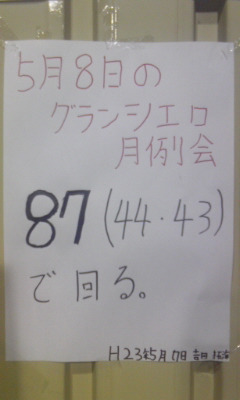 5月8日の
グランシエロ
月例会
87(44・43)
で回る。
H23年5月7日 吉日